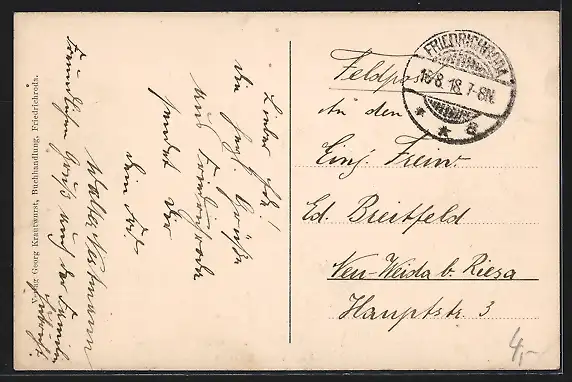 Lieber Ed!
die hzgl. Grüße
aus Friedrichroda
sendet Dir
dein Fritz
Walter Westmann
Freundlichen Gruß auch der Familie
Verlag Georg Krautwurst, Buchhandlung, Friedrichroda.
FRIEDRICHRODA
16.8.18.7-8N.
* * a
Feldpost
An den
Einj. Freiw.
Ed. Breitfeld
Neu-Weida b. Riesa
Hauptstr. 3
4,-